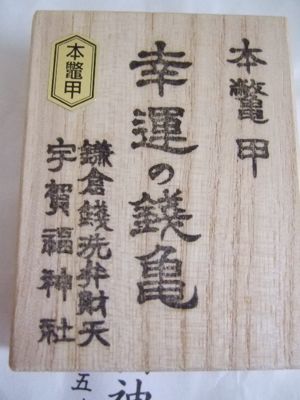 本鼈甲
幸運の銭亀
鎌倉錢洗弁財天
宇賀福神社
本鼈甲
神
五